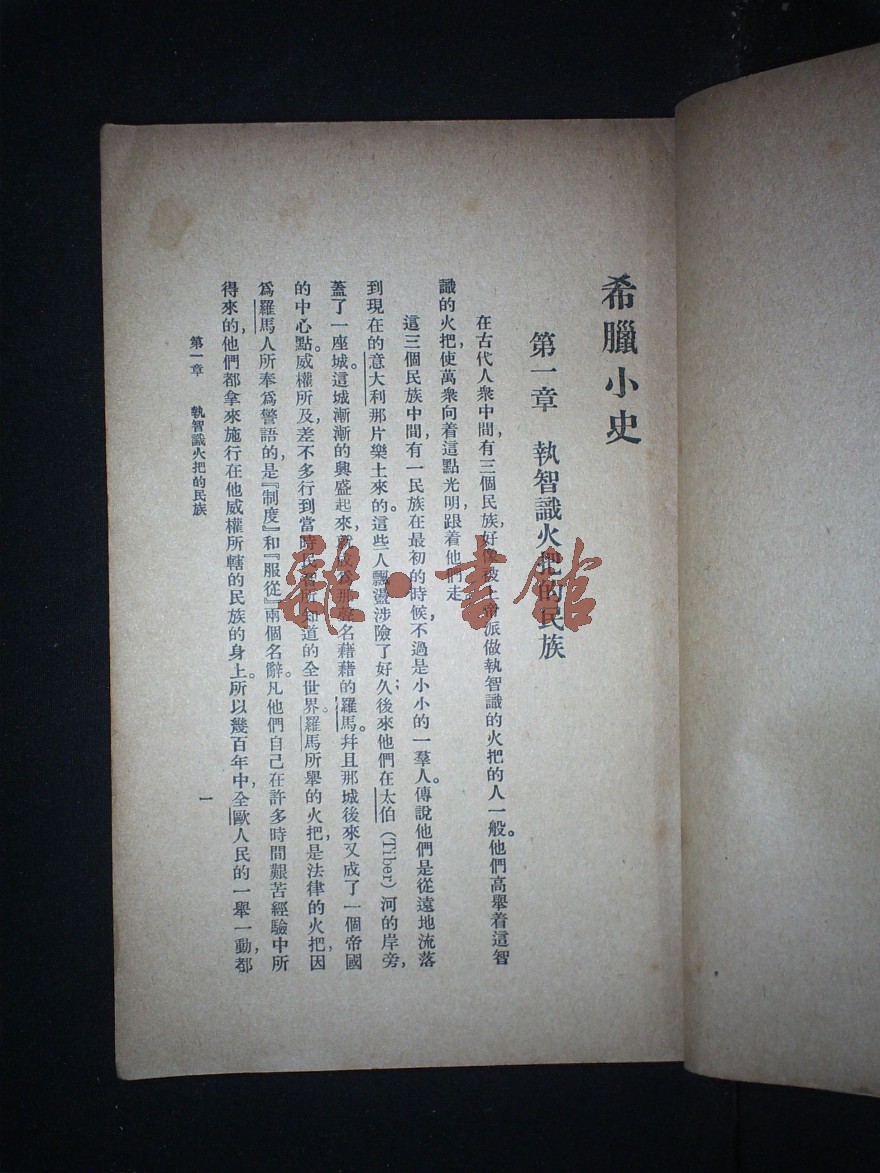 希臘小史
第一章 執智識火把的民族
在古代人衆中間,有三個民族,好像被上帝派做執智識的火把的人一般。他們高舉着這智
識的火把,使萬衆向着這點光明,跟着他們走
這三個民族中間,有一民族在最初的時候,不過是小小的一羣人。傳說他們是從遠地流落
到現在的意大利那片樂土來的。這些人飄盪涉險了好久;後來他們在太伯(Tiber)河的岸旁,
蓋了一座城。這城漸漸的興盛起來,就成爲那聲名藉藉的羅馬。幷且那城後來又成了一個帝國
的中心點。威權所及,差不多行到當時民智所知道的全世界。羅馬所舉的火把,是法律的火把,因
爲羅馬人所奉爲警語的,是『制度』和『服從』兩個名辭。凡他們自己在許多時間艱苦經驗中所
得來的,他們都拿來施行在他威權所轄的民族的身上。所以幾百年中,全歐人民的一舉一動,都
第一章 執智識火把的民族
一
雜·書館